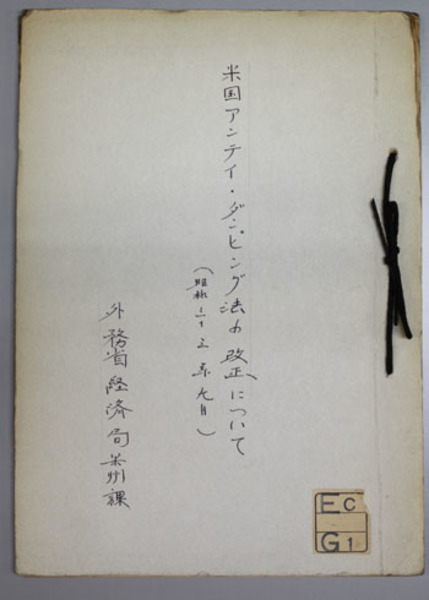 米国アンテイ・ダンピング法の改正について
(昭和三十三年九月)
外務省経済局米州課
EC
G1